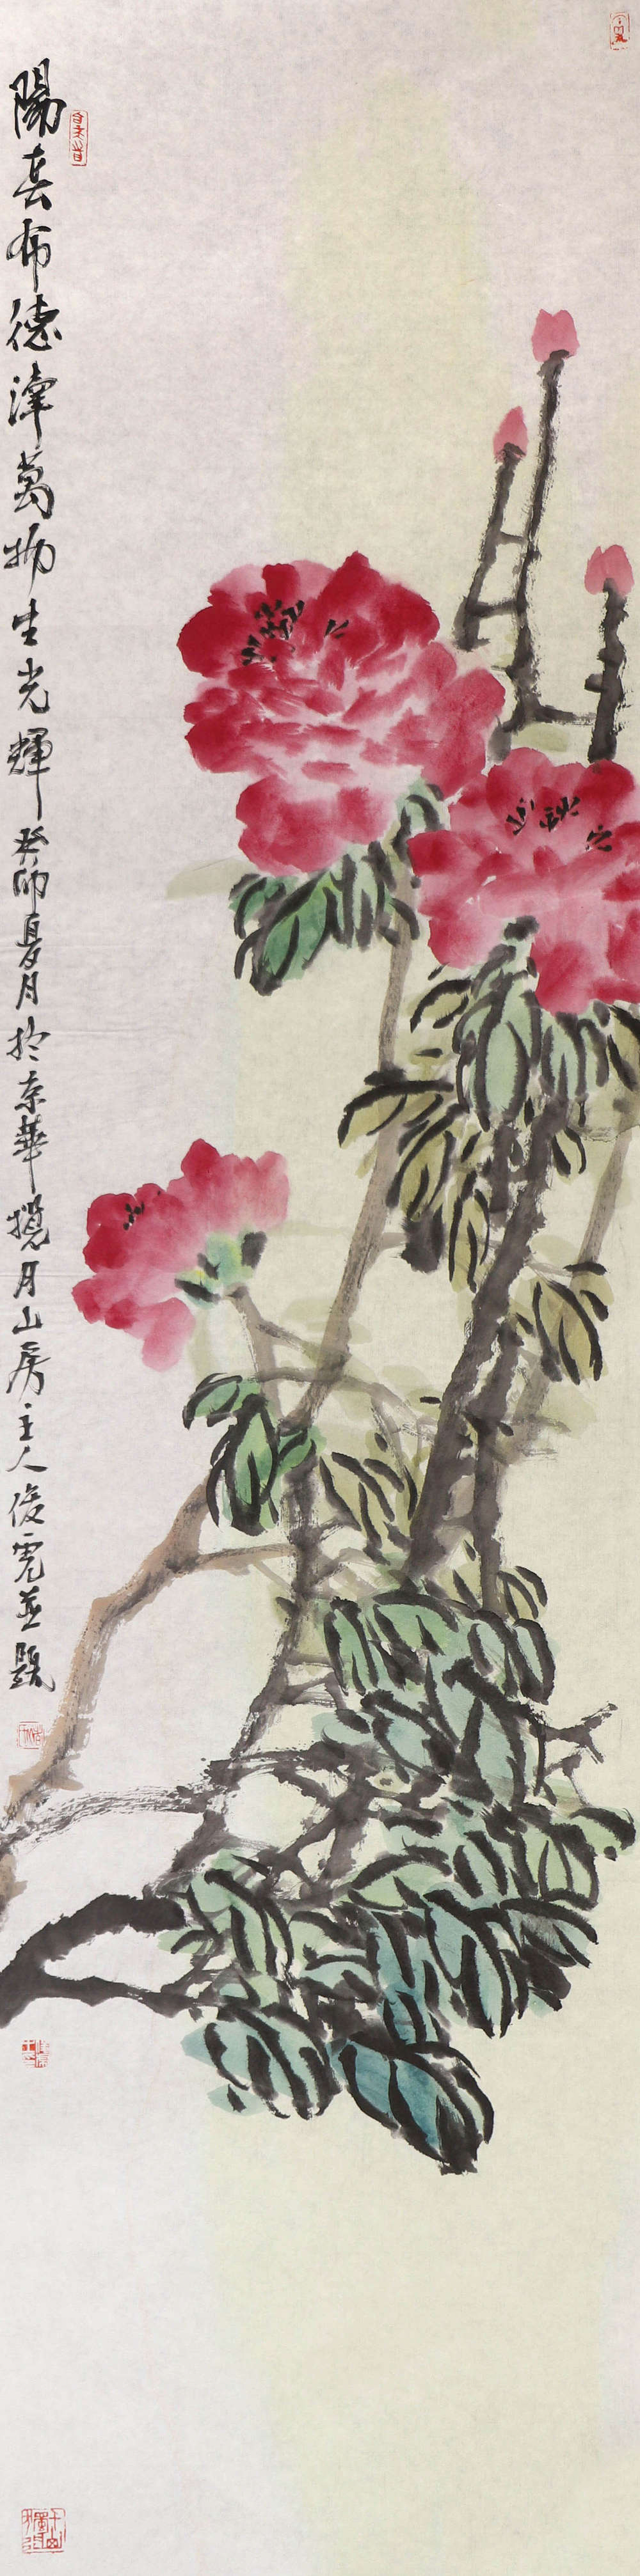 陽春布德澤萬物生光輝癸卯夏月於京華攬月山房主人俊虎並題